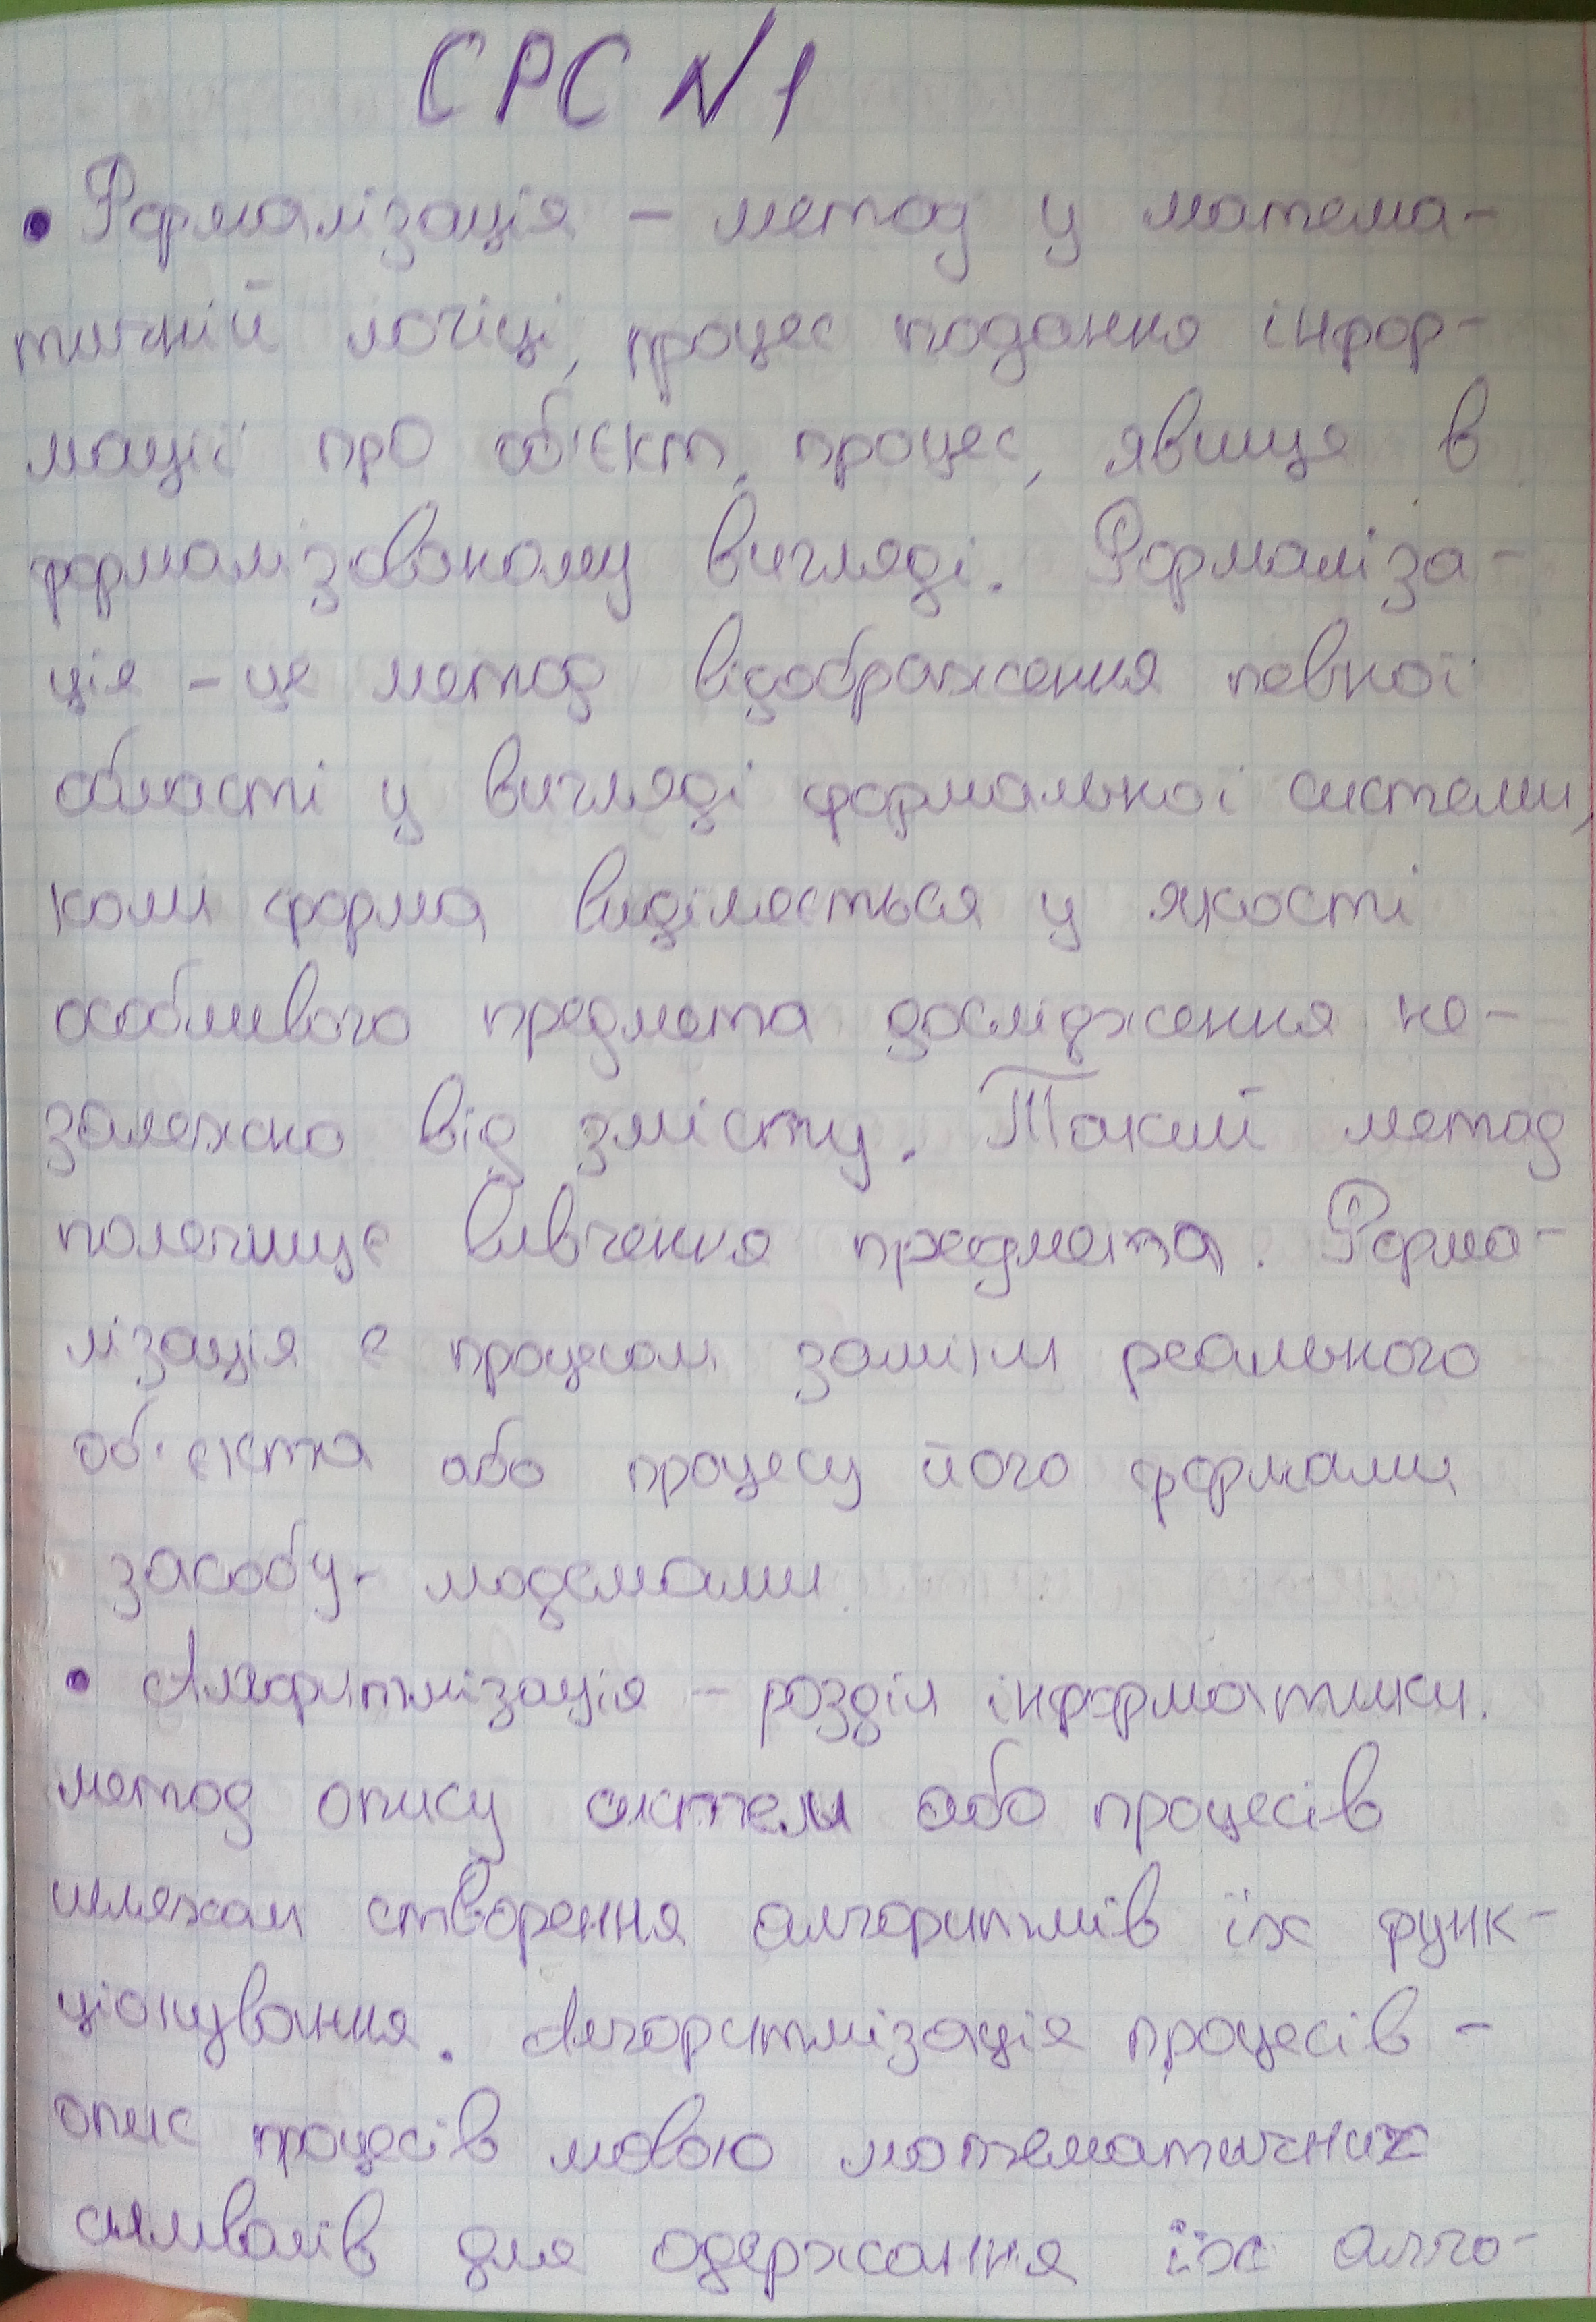 СРС №1
• Формалізація – метод у матема-
тичній логіці, процес подання інфор-
мації про об'єкт, процес, явище в
формалізованому вигляді. Формаліза-
ція – це метод відображення певної
області у вигляді формальної системи,
коли форма виділяється у якості
особливого предмета дослідження не-
залежно від змісту. Такий метод
полегшує вивчення предмета. Форма-
лізація є процесом заміни реального
об'єкта або процесу його формами
засобу- моделями.
• Алгоритмізація – розділ інформатики.
метод опису систем або процесів
шляхом створення алгоритмів їх функ-
ціонування. Алгоритмізація процесів –
опис процесів мовою математичних
символів для одержання їх алго-